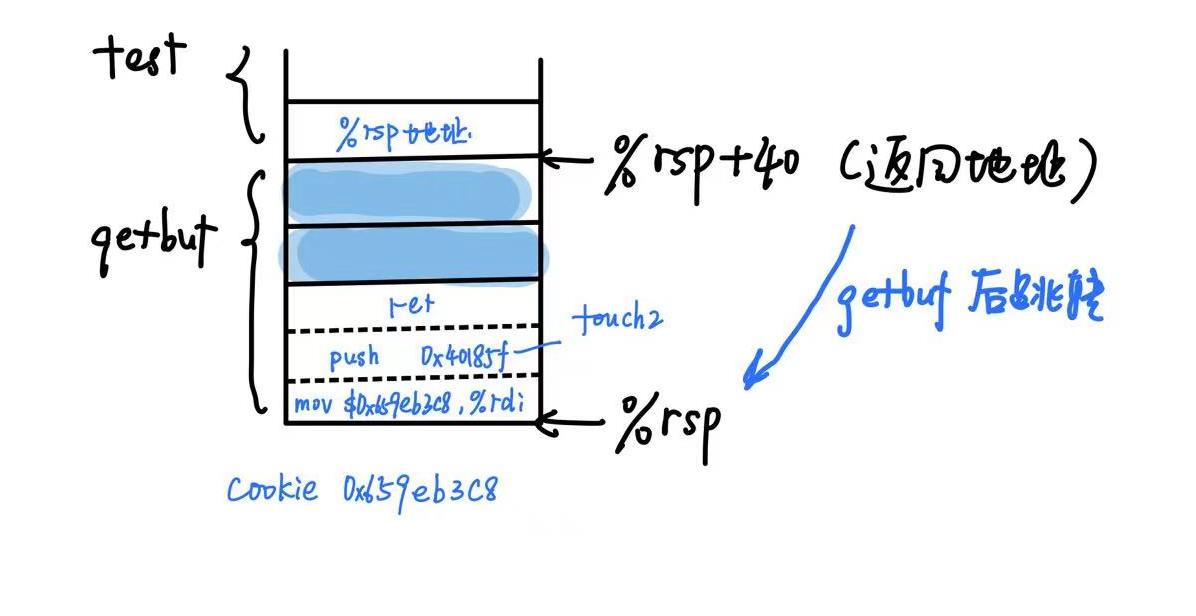 test
%rsp地址.
%rsp+40 (返回地址)
getbuf
getbuf 后跳转
ret
touch2
push 0x40185f
mov $0x659eb3c8, %rdi
%rsp
cookie 0x659eb3c8